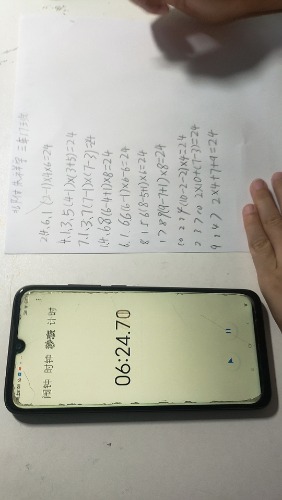 24.6.1 (2-1)×4×6=24
4.1.3.5 (4-1)×(3+5)=24
7.1.3.7 (7-1)×(7-3)=24
1.4.6.8 (6-4+1)×8=24
6.1.6.6 (6-1)×6-6=24
8.1.5.6 (8-5+1)×6=24
1 7 8 9 (9-7+1)×8=24
10 2 2 4 (10-2-2)×4=24
2 3 7 10 2×10+(7-3)=24
9 2 4 7 2×4+7+9=24
闹钟 时钟 秒表 计时
06:24.70